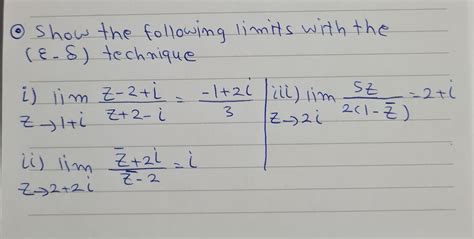 ⊙ Show the following limits with the
(ε-δ) technique
i) lim z→1+i (z-2+i)/(z+2-i) = (-1+2i)/3
iii) lim z→2i 5z/(2(1-z̅)) = 2+i
ii) lim z→2+2i (z̅+2i)/(z̅-2) = i